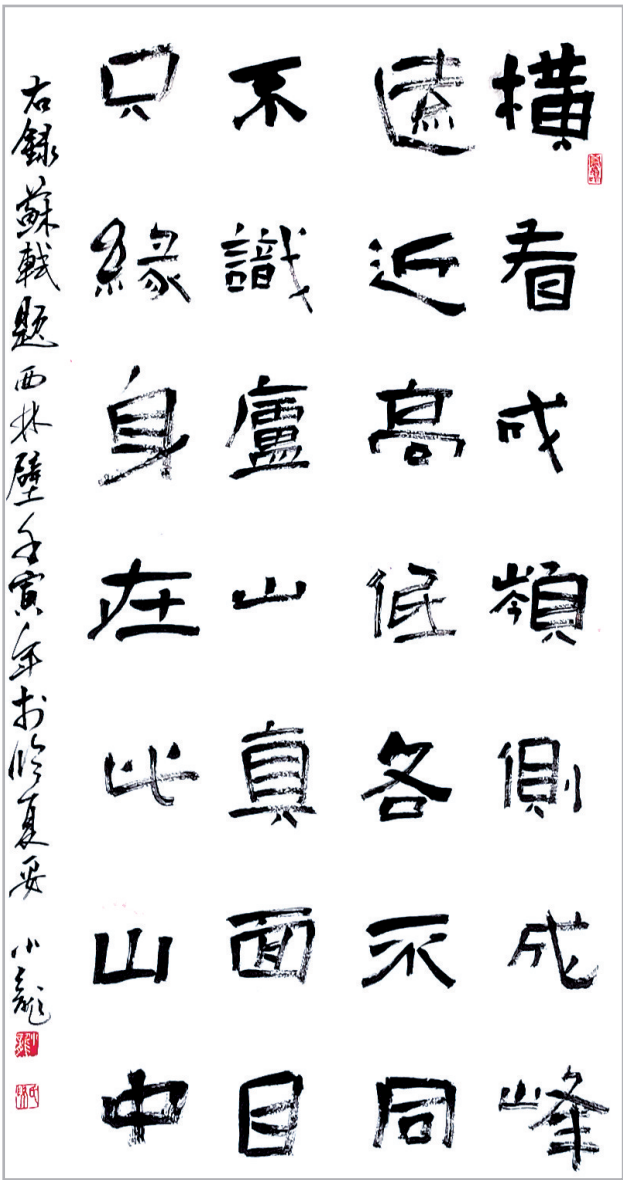 橫看成嶺側成峰
遠近高低各不同
不識廬山真面目
只緣身在此山中
右錄蘇軾题西林壁壬寅年於臨夏妥小龍